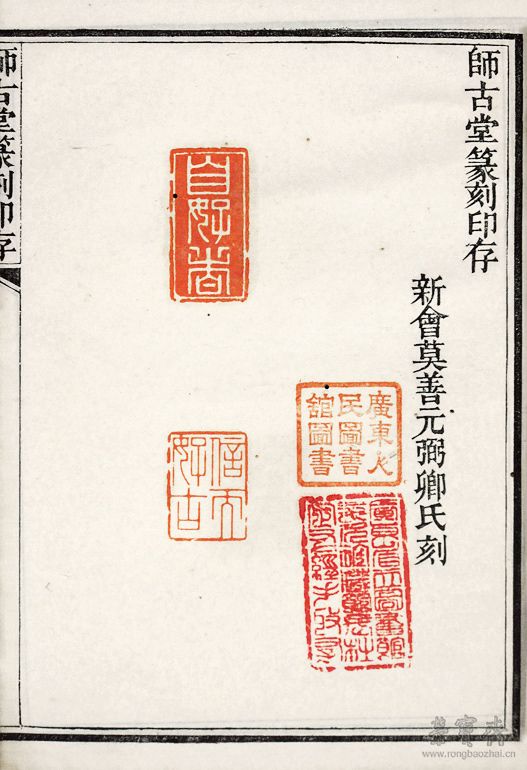 師古堂篆刻印存
新會莫善元弼卿氏刻
廣東人
民圖書
館圖書
自好者
信而
好古
師古堂篆刻印存
榮寶齋
www.rongbaozhai.cn